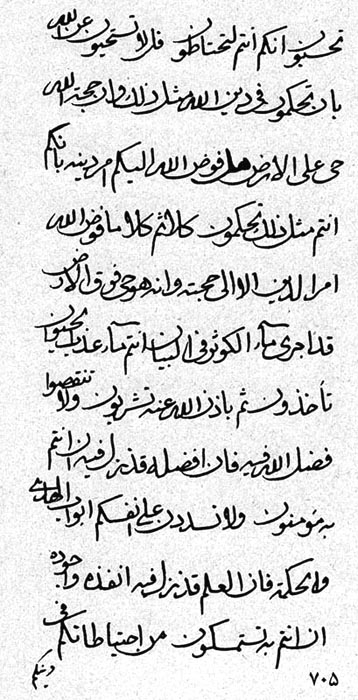 تحسبون انكم انتم لتحتاطون فلا تستحيون عن الله
بان تحكمون في دين الله مثل ذلك وان حجة الله
حي على الارض هل فوض الله اليكم امر دينه بانكم
انتم مثل ذلك تحكمون كلا ثم كلا ما فوض الله
امر الدين الا الى حجته وانه هو حي فوق الارض
قد اجرى ماء الكوثر في البيان انتم ماء عذب الحيوان
تأخذون ثم باذن الله عنه تشربون ولا تنقصوا
فضل الله فيه فان افضله قد نزل فيه ان انتم
به مؤمنون ولا تسددن على انفسكم ابواب الهدى
والحكمة فان العلم قد نزل فيه انفذه واجوده
ان انتم به تستمسكون من احتياطاتكم في
دينكم
٧٠٥